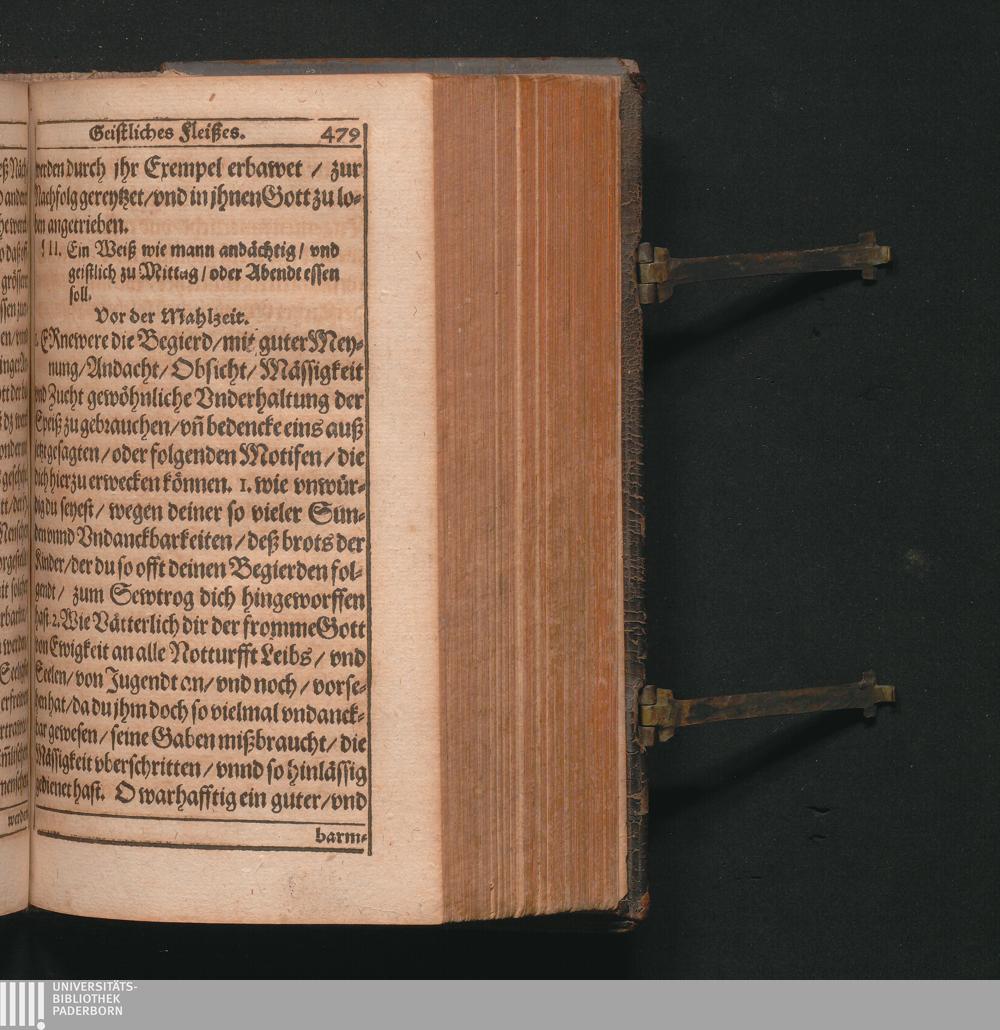 Geistliches Fleißes. 479
werden durch jhr Exempel erbawet / zur
Nachfolg gereytzet/vnd in jhnen Gott zu lo-
ben angetrieben.
III. Ein Weiß wie mann andächtig / vnd
geistlich zu Mittag / oder Abendt essen
soll.
Vor der Mahlzeit.
1. ERnewere die Begierd/mit guter Mey-
nung/Andacht/Obsicht/Mässigkeit
vnd Zucht gewöhnliche Vnderhaltung der
Speiß zu gebrauchen/vñ bedencke eins auß
jetzt gesagten/oder folgenden Motifen/die
dich hierzu erwecken können. 1. wie vnwür-
dig du seyest / wegen deiner so vieler Sun-
den vnnd Vndanckbarkeiten/deß brots der
Kinder/der du so offt deinen Begierden fol-
gendt / zum Sewtrog dich hingeworffen
hast 2. Wie Vätterlich dir der fromme Gott
von Ewigkeit an alle Notturfft Leibs / vnd
Seelen/von Jugendt an/vnd noch/vorse-
hen hat/da du jhm doch so vielmal vndanck-
bar gewesen/seine Gaben mißbraucht/die
Mässigkeit vberschritten/vnnd so hinlässig
gedienet hast. O warhafftig ein guter/vnd
barm-
werden
UNIVERSITÄTS-
BIBLIOTHEK
PADERBORN